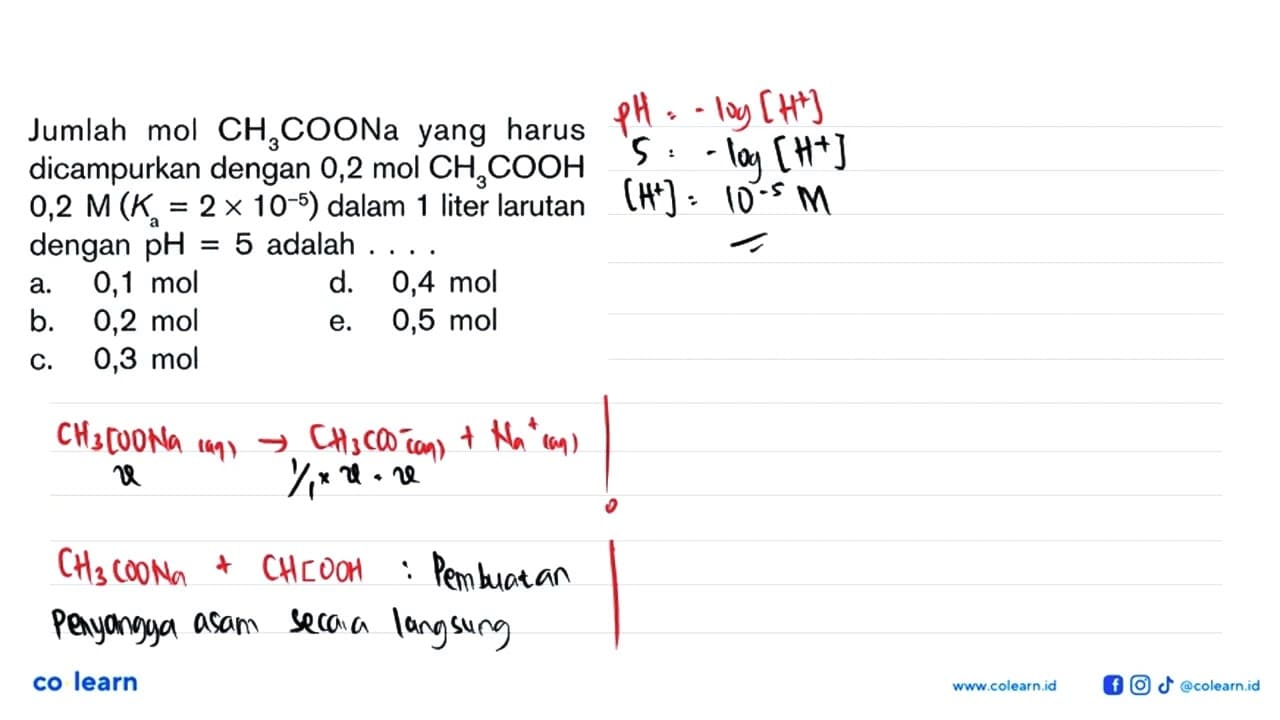 Jumlah mol CH₃COONa yang harus
dicampurkan dengan 0,2 mol CH₃COOH
0,2 M (Kₐ = 2 × 10⁻⁵) dalam 1 liter larutan
dengan pH = 5 adalah . . . .
a. 0,1 mol d. 0,4 mol
b. 0,2 mol e. 0,5 mol
c. 0,3 mol
pH = - log [H⁺]
5 = - log [H⁺]
[H⁺] = 10⁻⁵ M
CH₃COONa (aq) → CH₃COO⁻(aq) + Na⁺ (aq)
x 1/1 × x = x
CH₃COONa + CHCOOH : Pembuatan
Penyangga asam secara langsung
co learn
www.colearn.id @colearn.id